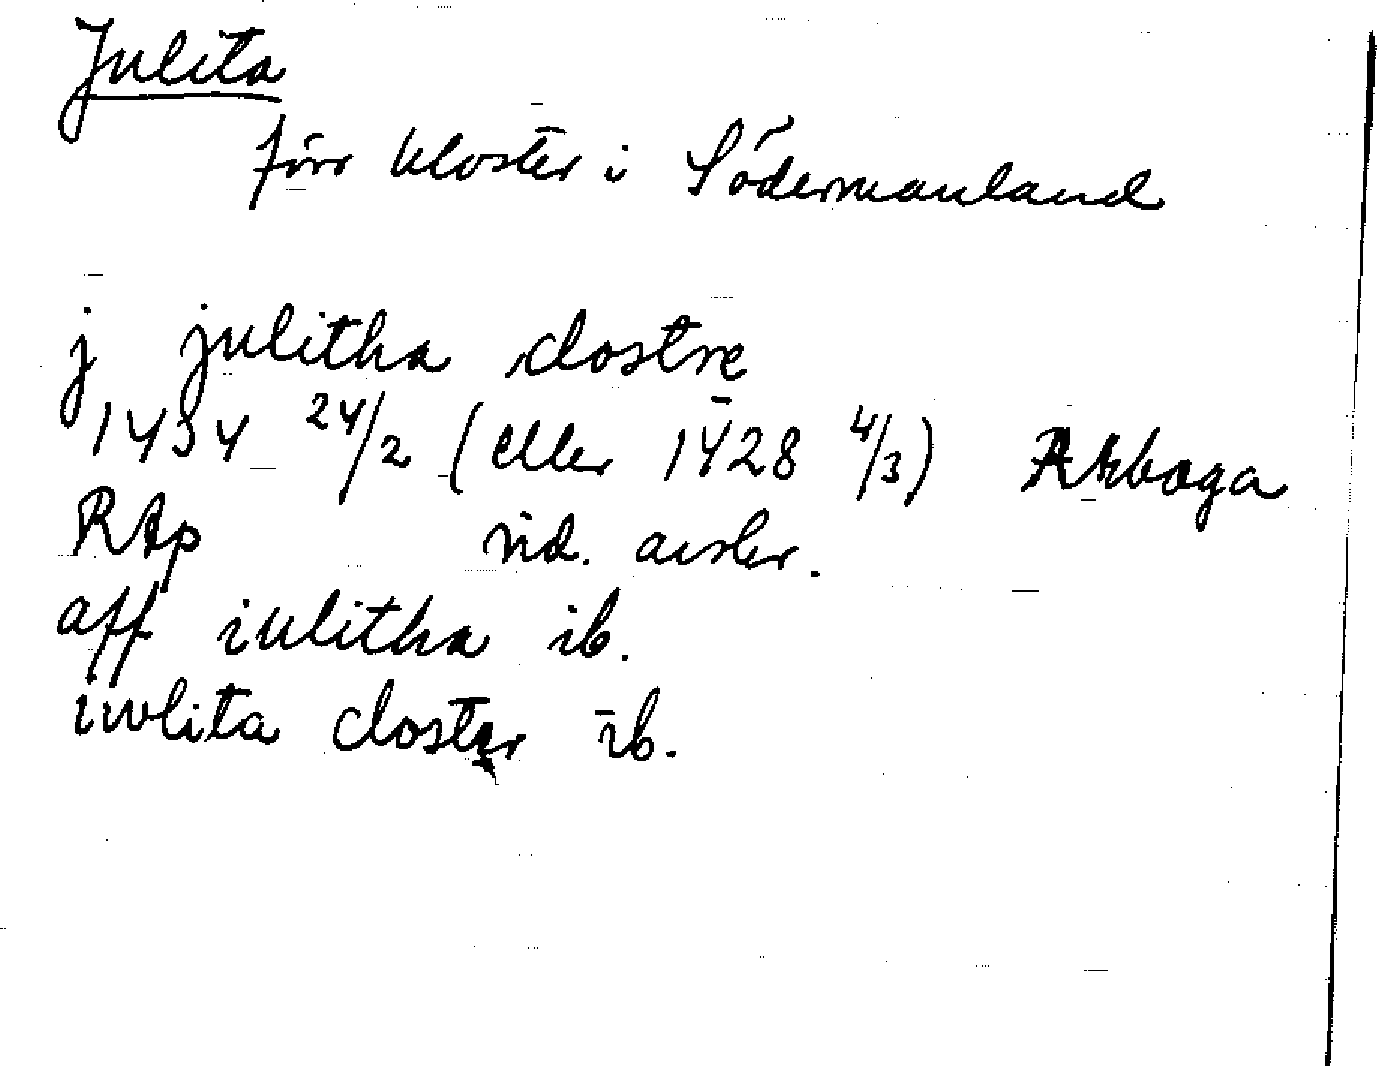 Julita
förr kloster i Södermanland
j julitha clostre
1434 24/2 (eller 1428 4/3) Arboga
RAp vid. avskr.
aff iulitha ib.
iwlita closter ib.